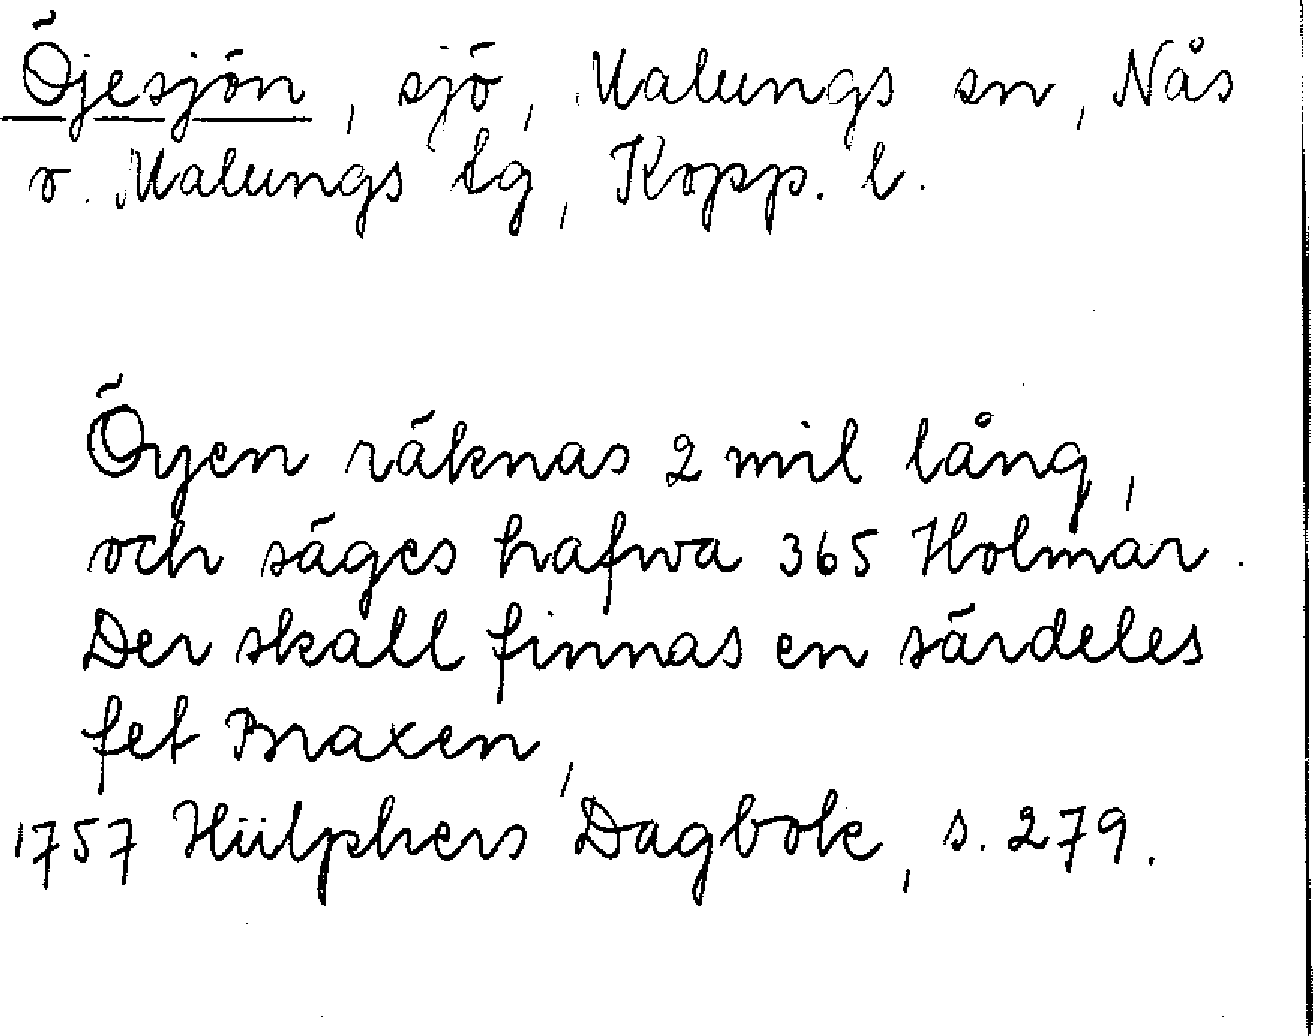 Öjesjön, sjö, Malungs sn, Nås
o. Malungs tg, Kopp. l.
Öyen räknas 2 mil lång,
och säges hafwa 365 Holmar.
Der skall finnas en särdeles
fet Braxen,
1757 Hülphers Dagbok, s. 279.